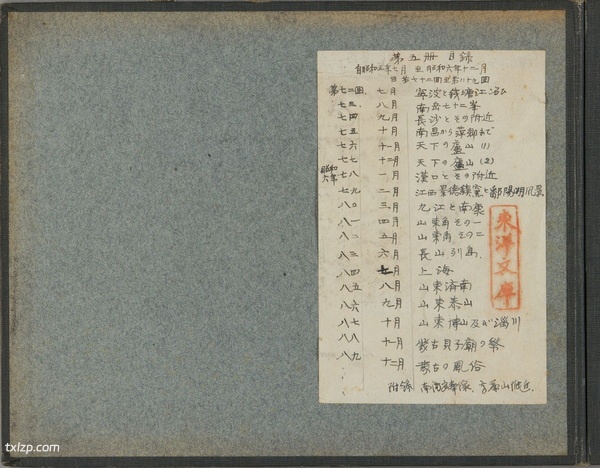 第五册 目録
自昭和五年七月 至昭和六年十二月
自第七十二回至第八十九回
第七二回 七月 寧波と銭塘江
七三 八月 南岳七十二峯
七四 九月 長沙とその附近
七五 十月 南昌から萍郷まで
七六 十一月 天下の廬山(1)
七七 十二月 天下の廬山(2)
昭和六年 七八 一月 漢口とその附近
七九 二月 江西景徳鎮窯と鄱陽湖風景
八〇 三月 九江と南
八一 四月 山東角その一
八二 五月 山東角その二
八三 六月 長山列島
八四 七月 上海
八五 八月 山東済南
八六 九月 山東泰山
八七 十月 山東博山及ビ淄川
八八 十一月 蒙古貝子廟の祭
八九 十二月 蒙古の風俗
附録 附近
東洋文庫
txlzp.com